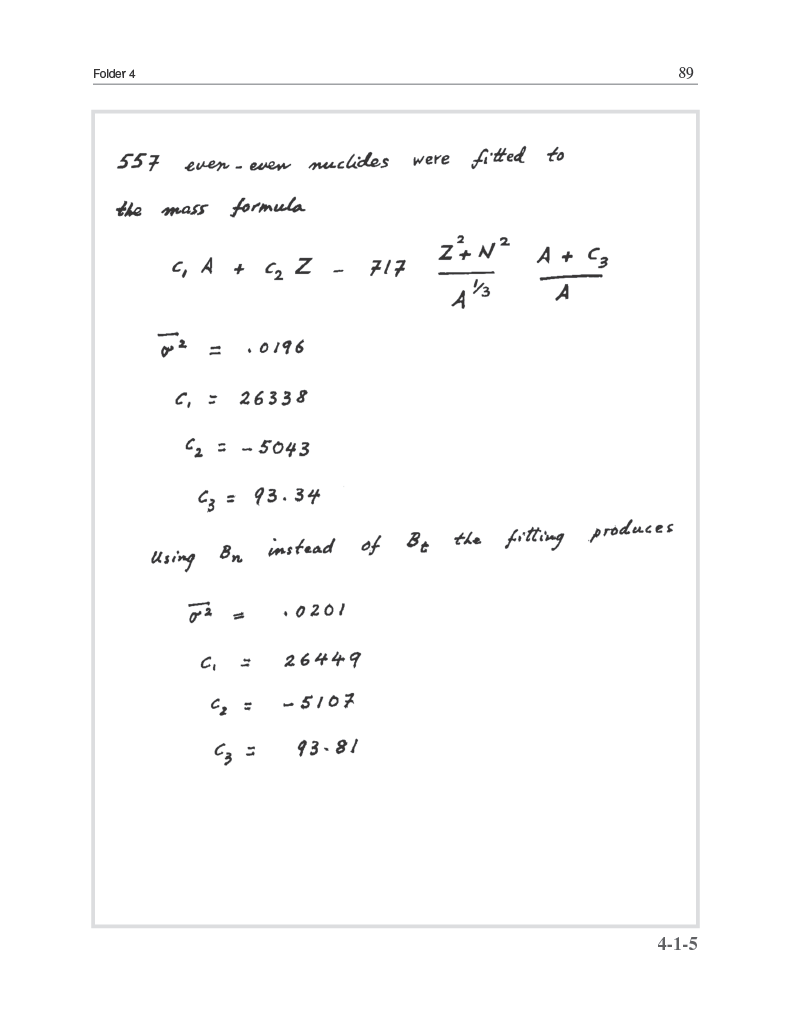 Folder 4 89
557 even-even nuclides were fitted to
the mass formula
C₁ A + C₂ Z - 717 (Z² + N²)/A^(1/3) (A + C₃)/A
σ² = .0196
C₁ = 26338
C₂ = -5043
C₃ = 93.34
Using Bn instead of Bt the fitting produces
σ² = .0201
C₁ = 26449
C₂ = -5107
C₃ = 93.81
4-1-5